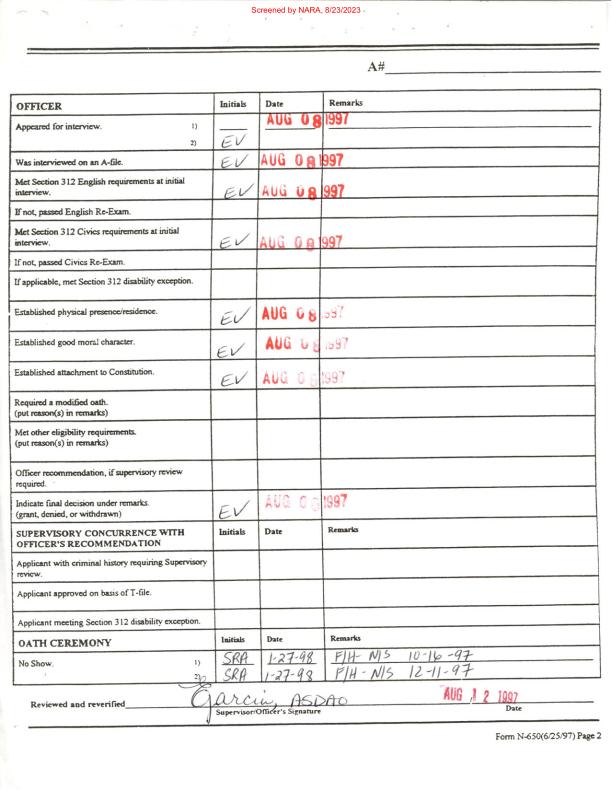 Screened by NARA, 8/23/2023
A#
OFFICER Initials Date Remarks
Appeared for interview. 1) AUG 08 1997
2) EV
Was interviewed on an A-file. EV AUG 08 1997
Met Section 312 English requirements at initial
interview. EV AUG 08 1997
If not, passed English Re-Exam.
Met Section 312 Civics requirements at initial
interview. EV AUG 08 1997
If not, passed Civics Re-Exam.
If applicable, met Section 312 disability exception.
Established physical presence/residence. EV AUG 08 1997
Established good moral character. EV AUG 08 1997
Established attachment to Constitution. EV AUG 08 1997
Required a modified oath.
(put reason(s) in remarks)
Met other eligibility requirements.
(put reason(s) in remarks)
Officer recommendation, if supervisory review
required.
Indicate final decision under remarks.
(grant, denied, or withdrawn) EV AUG 08 1997
SUPERVISORY CONCURRENCE WITH Initials Date Remarks
OFFICER'S RECOMMENDATION
Applicant with criminal history requiring Supervisory
review.
Applicant approved on basis of T-file.
Applicant meeting Section 312 disability exception.
OATH CEREMONY Initials Date Remarks
No Show. 1) SRA 1-27-98 F/H- N/S 10-16-97
2) SRA 1-27-98 F/H- N/S 12-11-97
Reviewed and reverified Garcia, ASDAO AUG 12 1997
Supervisor/Officer's Signature Date
Form N-650(6/25/97) Page 2